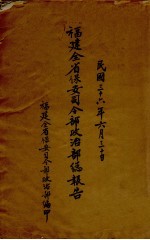 民國三十六年六月三十日
福建全省保安司令部政治部總報告
福建全省保安司令部政治部編印